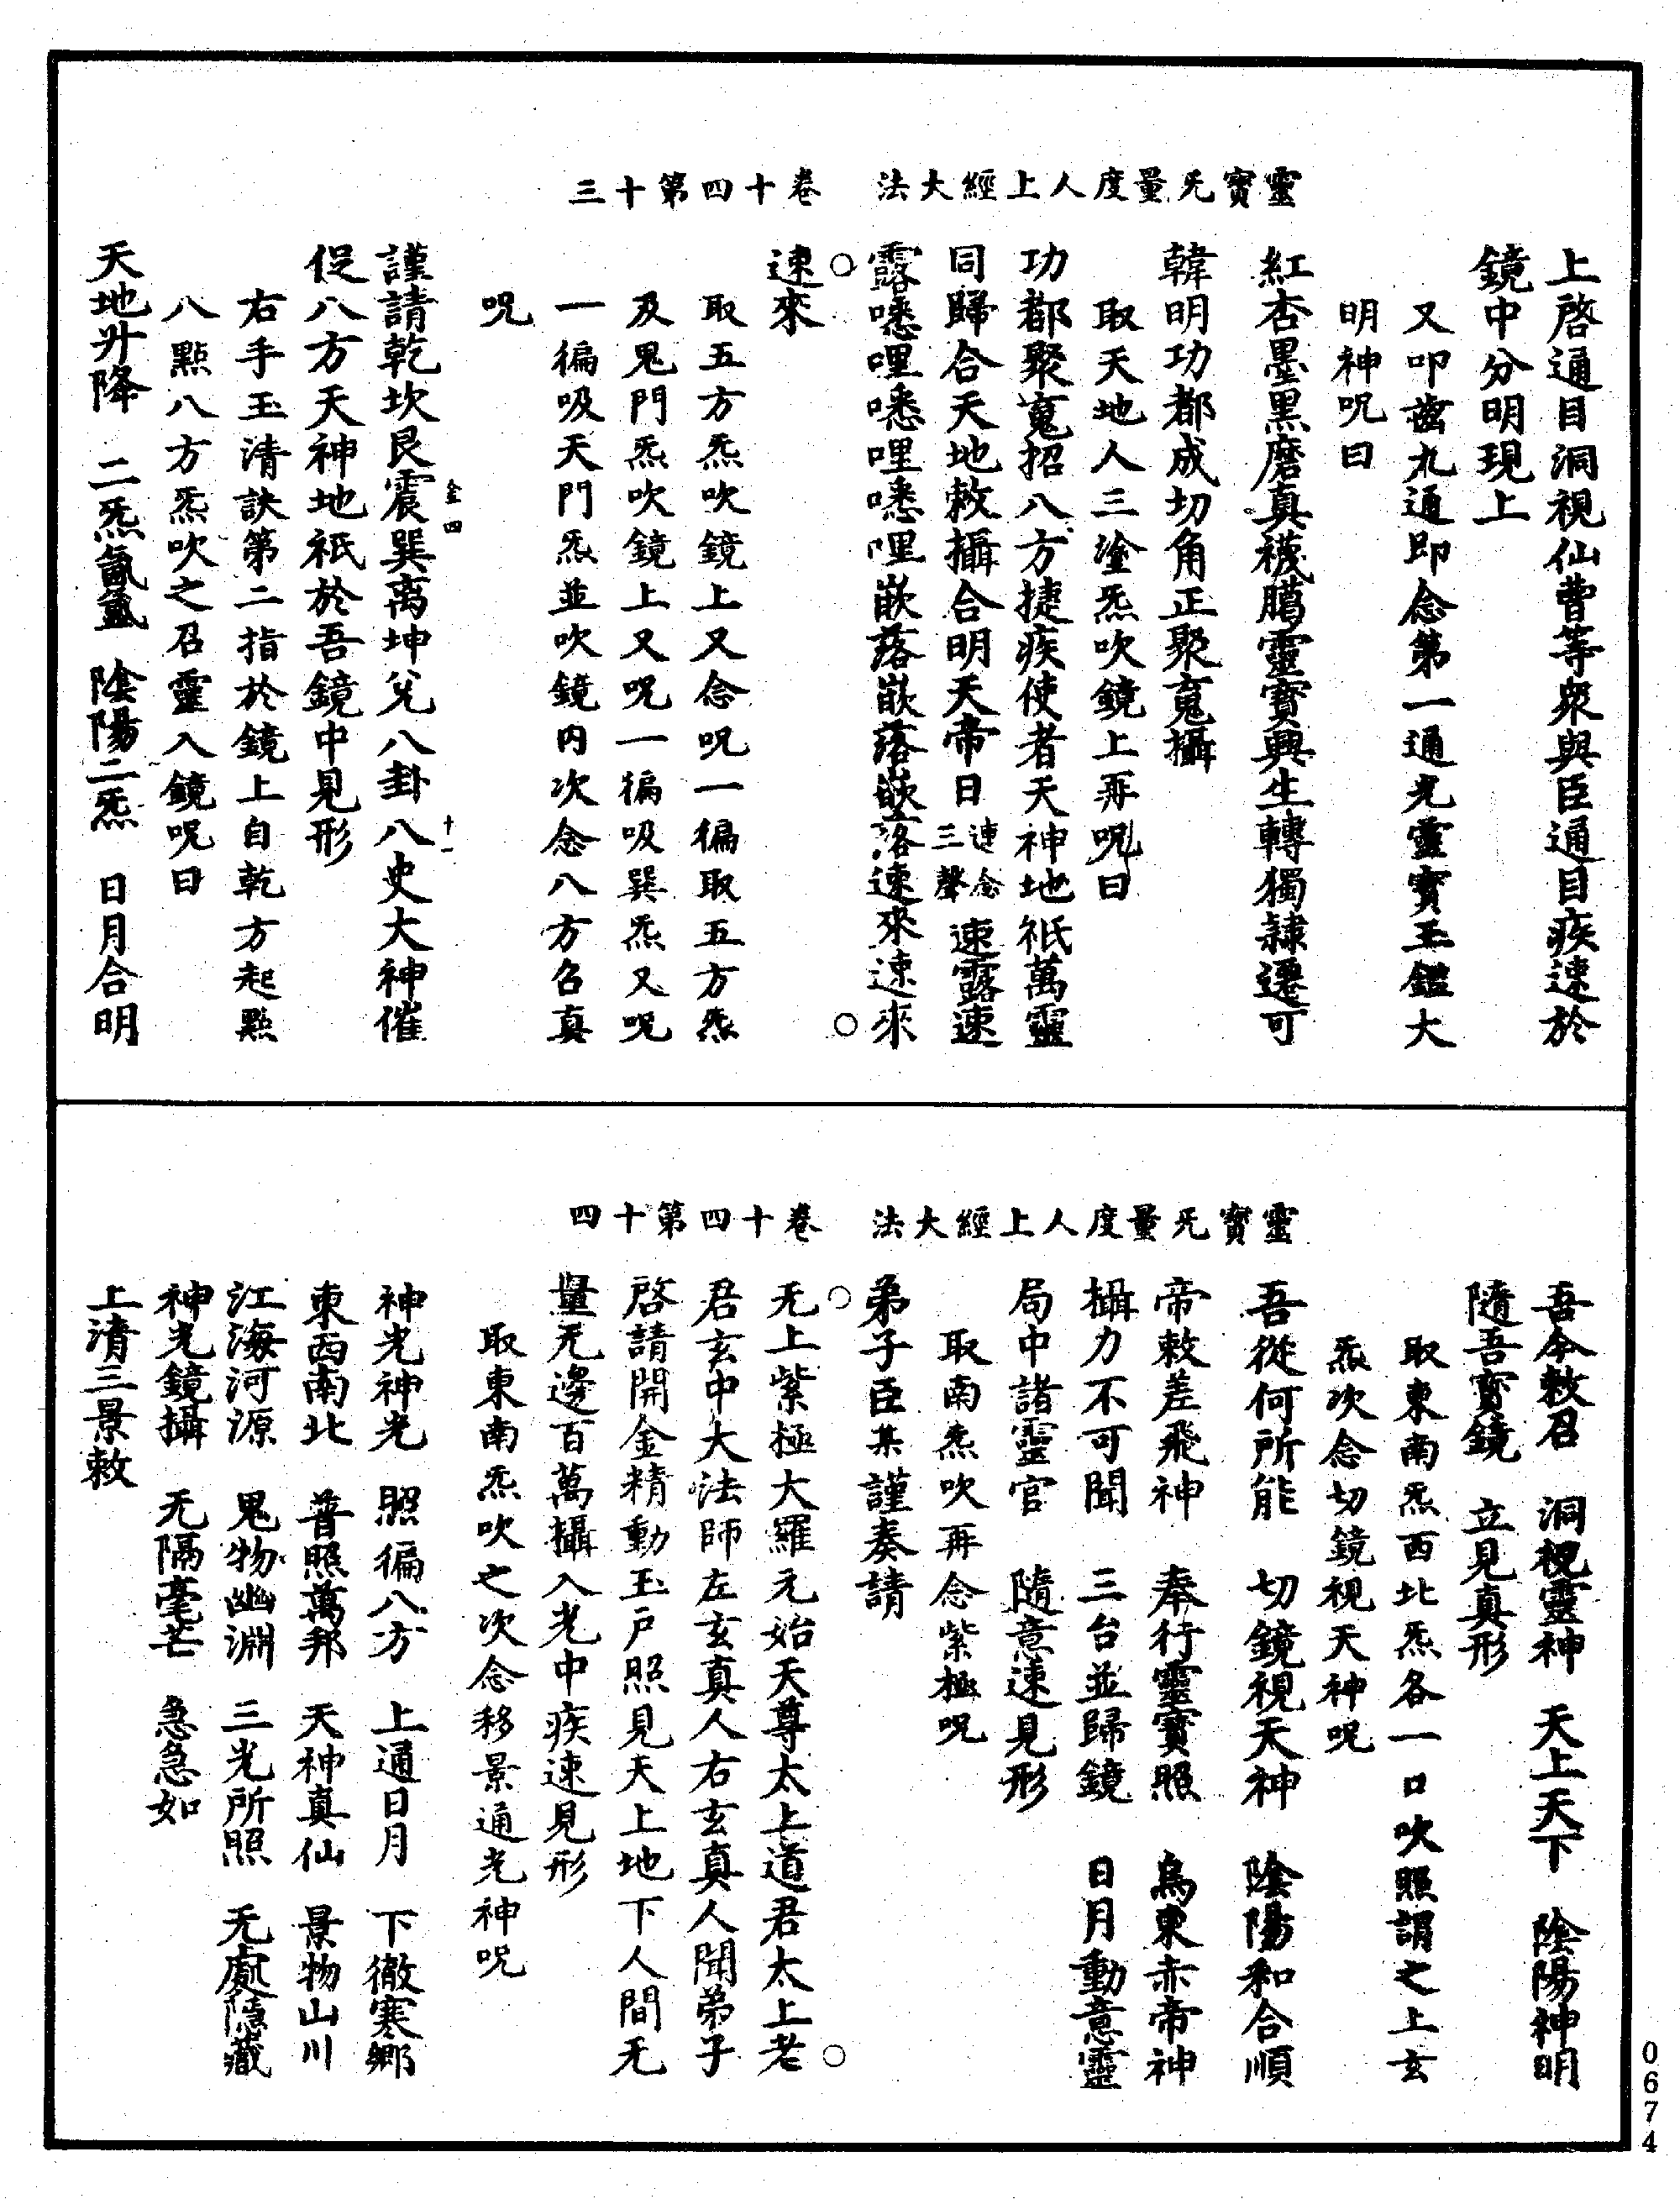 靈寶无量度人上經大法　卷十四第十三
上啓通目洞視仙曹等衆與臣通目疾速於
鏡中分明現上
又叩齒九通即念第一通光靈寶玉鑑大
明神呪曰
紅杏墨黑磨真襪臈靈寶興生轉獨隸遷可
韓明功都成切角正聚𡨥攝
取天地人三塗炁吹鏡上再呪曰
功都聚𡨥招八方捷疾使者天神地祇萬靈
同歸合天地敕攝合明天帝日連念三聲速露速
露㗭哩㗭哩㗭哩嵌落嵌落嵌落速來速來
速來
取五方炁吹鏡上又念呪一徧取五方炁
及鬼門炁吹鏡上又呪一徧吸巽炁又呪
一徧吸天門炁並吹鏡内次念八方召真
呪
謹請乾坎艮震巽离坤兌八卦八史大神催
金四　十一
促八方天神地祇於吾鏡中見形
右手玉清訣第二指於鏡上自乾方起點
八點八方炁吹之召靈入鏡呪曰
天地升降　二炁氤氳　陰陽二炁　日月合明
靈寶无量度人上經大法　卷十四第十四
吾今敕召　洞視靈神　天上天下　陰陽神明
隨吾寶鏡　立見真形
取東南炁西北炁各一口吹照謂之上玄
炁次念切鏡視天神呪
吾從何所能　切鏡視天神　陰陽和合順
帝敕差飛神　奉行靈寶照　烏東赤帝神
攝力不可聞　三台並歸鏡　日月動意靈
局中諸靈官　隨意速見形
取南炁吹再念紫極呪
弟子臣某謹奏請
无上紫極大羅元始天尊太上道君太上老
君玄中大法師左玄真人右玄真人聞弟子
啓請開金精動玉戶照見天上地下人間无
量无邊百萬攝入光中疾速見形
取東南炁吹之次念移景通光神呪
神光神光　照徧八方　上通日月　下徹寒鄉
東西南北　普照萬邦　天神真仙　景物山川
江海河源　鬼物幽淵　三光所照　无處隱藏
神光鏡攝　无隔毫芒　急急如
上清三景敕
0674